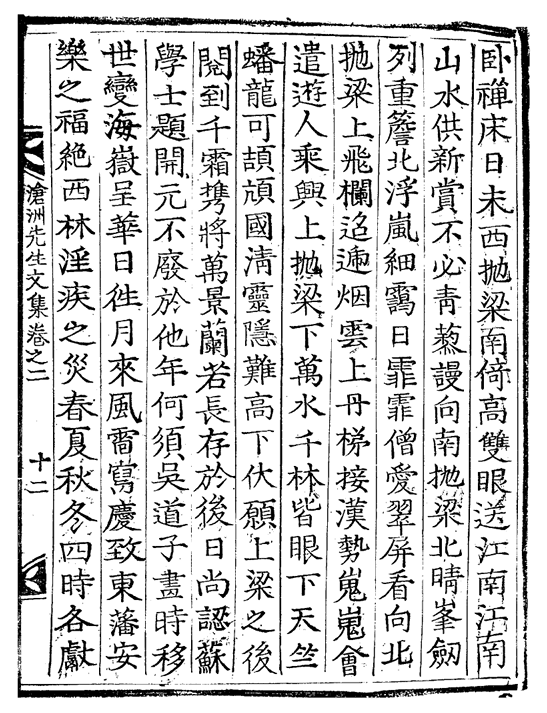 卧禪床日未西抛梁南倚高雙眼送江南江南
山水供新賞不必靑蒸謾向南抛梁北晴峯劒
列重簷北浮嵐細靄日霏霏僧愛翠屛看向北
抛梁上飛欄迢遞烟雲上丹梯接漢勢嵬嵬會
遣遊人乘興上抛梁下萬水千林皆眼下天竺
蟠龍可頡頏國淸靈隱難高下伏願上梁之後
閱到千霜携將萬景蘭若長存於後日尙認蘇
學士題開元不廢於他年何須吳道子畫時移
世變海嶽呈華日徃月來風雷寫慶致東藩安
樂之福絶西林淫疾之災春夏秋冬四時各獻
滄洲先生文集卷之二
十二